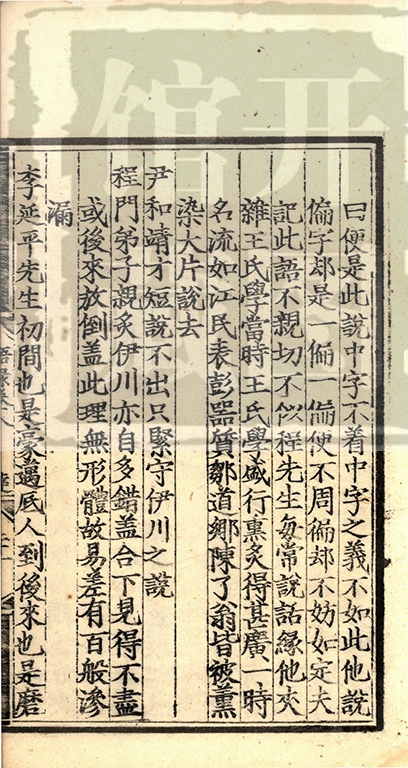 曰便是此說中字不着中字之義不如此他說
偏字却是一偏一偏便不周徧却不妨如定夫
記此語不親切不似程先生每常說話緣他夾
雜王氏學當時王氏學盛行熏炙得甚廣一時
名流如江民表彭器質鄒道鄉陳了翁皆被薰
染大片說去
尹和靖才短說不出只緊守伊川之說
程門弟子親炙伊川亦自多錯盖合下見得不盡
或後來放倒盖此理無形體故易差有百般滲
漏
李延平先生初間也是豪邁底人到後來也是磨